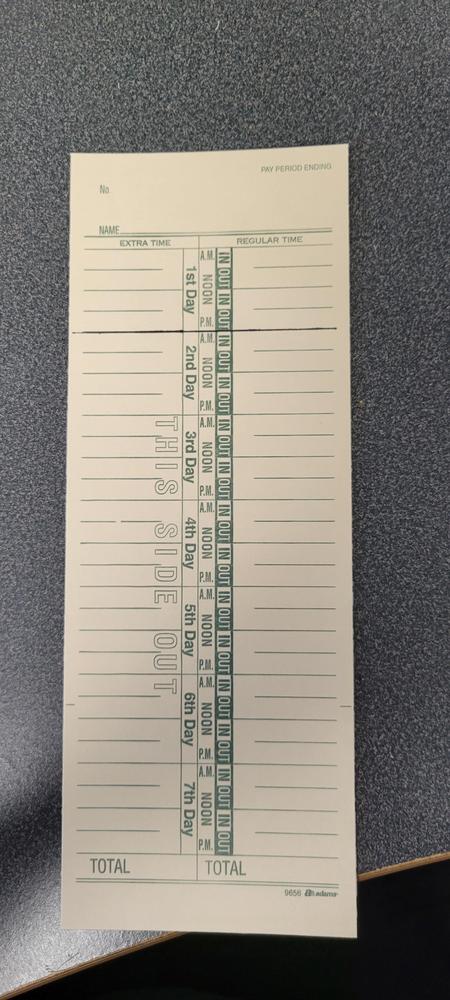 PAY PERIOD ENDING
No
NAME
EXTRA TIME REGULAR TIME
1st Day
A.M.
NOON
P.M.
IN OUT IN OUT IN OUT
2nd Day
A.M.
NOON
P.M.
IN OUT IN OUT IN OUT
3rd Day
A.M.
NOON
P.M.
IN OUT IN OUT IN OUT
4th Day
A.M.
NOON
P.M.
IN OUT IN OUT IN OUT
5th Day
A.M.
NOON
P.M.
IN OUT IN OUT IN OUT
6th Day
A.M.
NOON
P.M.
IN OUT IN OUT IN OUT
7th Day
A.M.
NOON
P.M.
IN OUT IN OUT IN OUT
THIS SIDE OUT
TOTAL TOTAL
9656 adams